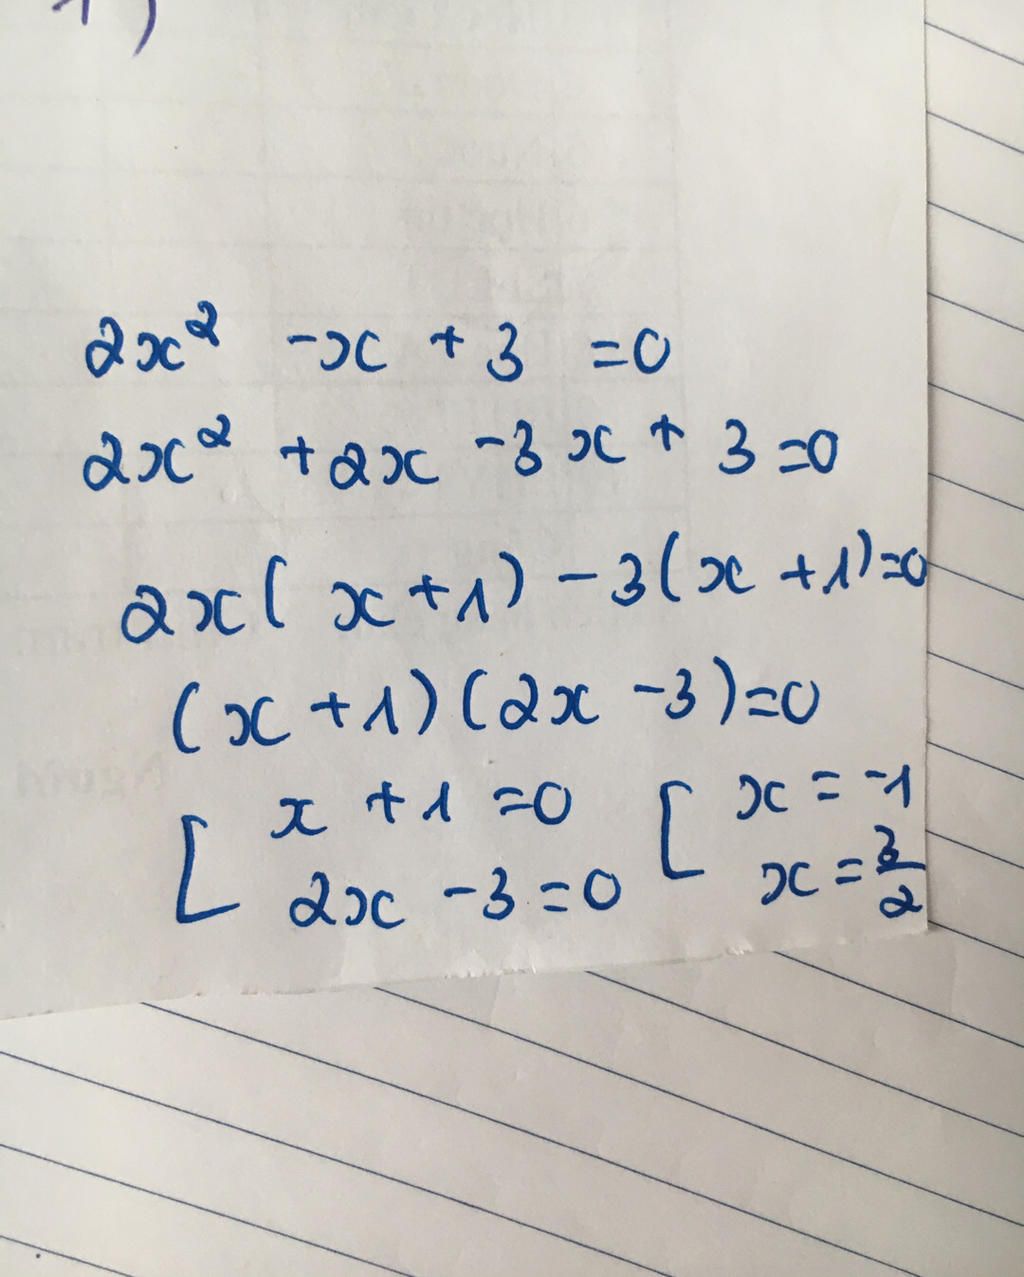 2x² -x + 3 =0
2x² +2x -3x + 3=0
2x( x+1) -3(x +1)=0
(x +1)(2x -3)=0
[ x +1 =0 [ x = -1
2x -3=0 x = 3/2